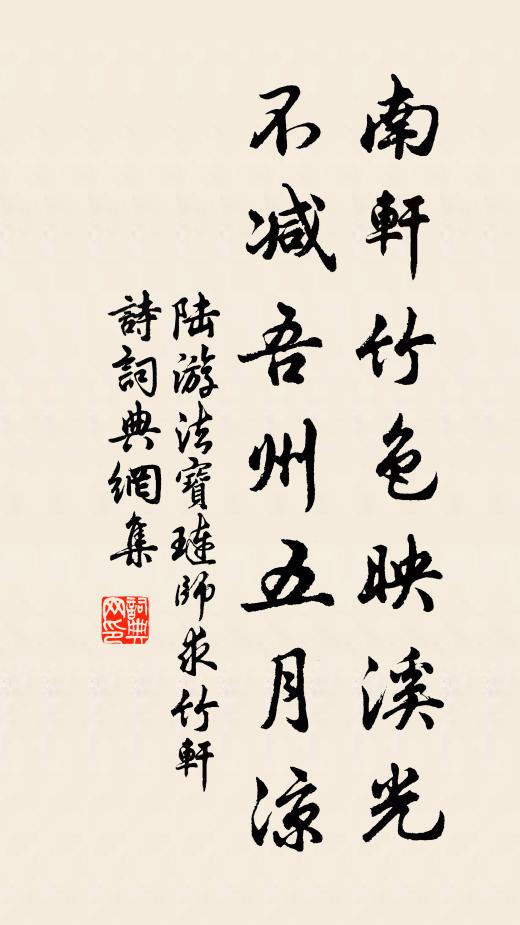 南軒竹色映溪光
不减吾州五月涼
陆游法寶璉師求竹軒
詩詞典網集
詞典网印